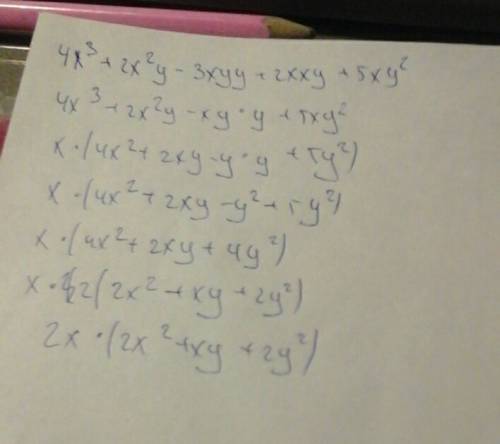 4x³ + 2x²y - 3xyy + 2xxy + 5xy²
4x³ + 2x²y - xy·y + 5xy²
x·(4x² + 2xy - y·y + 5y²)
x·(4x² + 2xy - y² + 5y²)
x·(4x² + 2xy + 4y²)
x·2(2x² + xy + 2y²)
2x·(2x² + xy + 2y²)